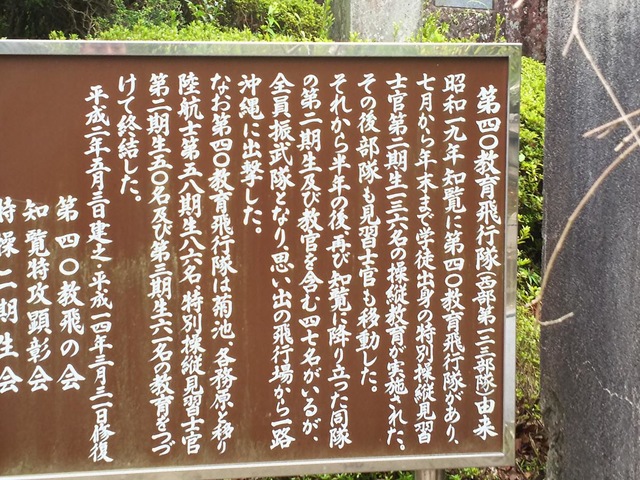 第四〇教育飛行隊(西部第一二三部隊)由来
昭和一九年知覧に第四〇教育飛行隊があり、
七月から年末まで学徒出身の特別操縦見習
士官第二期生一三六名の操縦教育が実施された。
その後部隊も見習士官も移動した。
それから半年の後、再び知覧に降り立った同隊
の第二期生及び教官を含む四七名がいるが、
全員振武隊となり、思い出の飛行場から一路
沖縄に出撃した。
なお第四〇教育飛行隊は菊池、各務原と移り
陸航士第五八期生八六名、特別操縦見習士官
第二期生五〇名及び第三期生六一名の教育をつづ
けて終結した。
平成二年五月三日建之・平成一四年三月二一日修復
第四〇教飛の会
知覧特攻顕彰会
特操二期生会